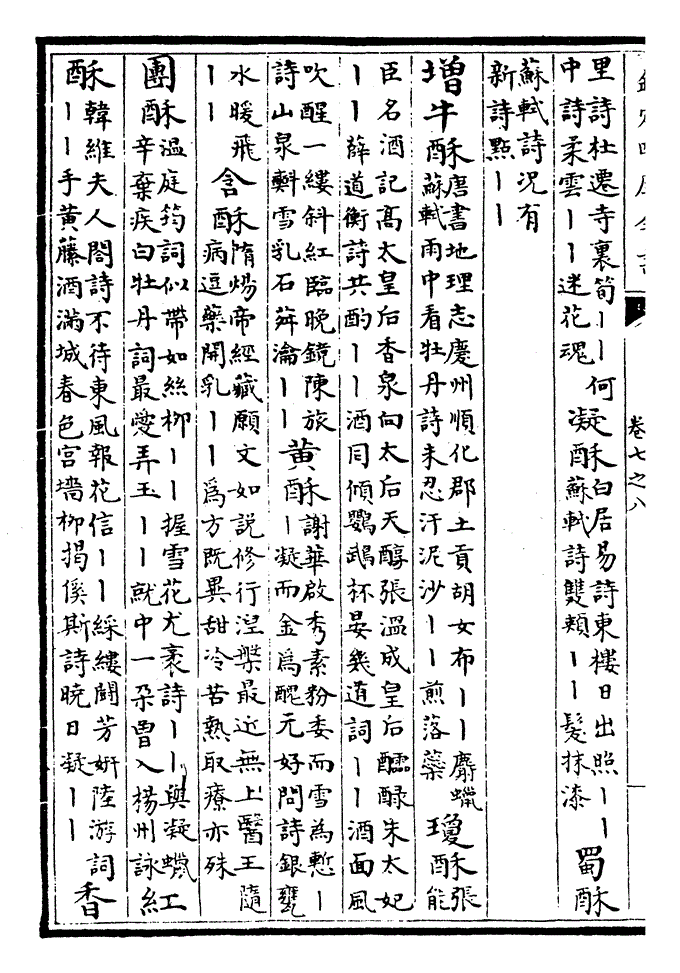 卷七之八
里詩杜遷寺裏筍丨丨何
中詩柔雲丨丨迷花魂
凝酥
白居易詩東樓日出照丨丨
蘇軾詩雙頰丨丨髮抹漆
蜀酥
蘇軾詩況有
新詩點丨丨
增牛酥
唐書地理志慶州順化郡土貢胡女布丨丨麝蠟
蘇軾雨中看牡丹詩未忍汙泥沙丨丨煎落蘂
瓊酥
張
能
臣名酒記高太皇后香泉向太后天醇張溫成皇后醽醁朱太妃
丨丨薛道衡詩共酌丨丨酒同傾鸚鵡杯晏幾道詞丨丨酒面風
吹醒一縷斜紅臨晚鏡陳旅
詩山泉㪺雪乳石鼎瀹丨丨
黃酥
謝華啟秀素粉委而雪為慙丨
丨凝而金爲醜元好問詩銀甕
水暖飛
丨丨
含酥
隋煬帝經藏願文如說修行涅槃最近無上醫王隨
病逗藥開乳丨丨爲方既異甜冷苦熟取療亦殊
團酥
溫庭筠詞似帶如絲柳丨丨握雪花尤袤詩丨丨與凝蠟
辛棄疾白牡丹詞最愛弄玉丨丨就中一朵曾入楊州詠
紅
酥
韓維夫人閤詩不待東風報花信丨丨綵縷鬪芳妍陸游詞
丨丨手黃藤酒滿城春色宮墻柳揭傒斯詩曉日凝丨丨
香